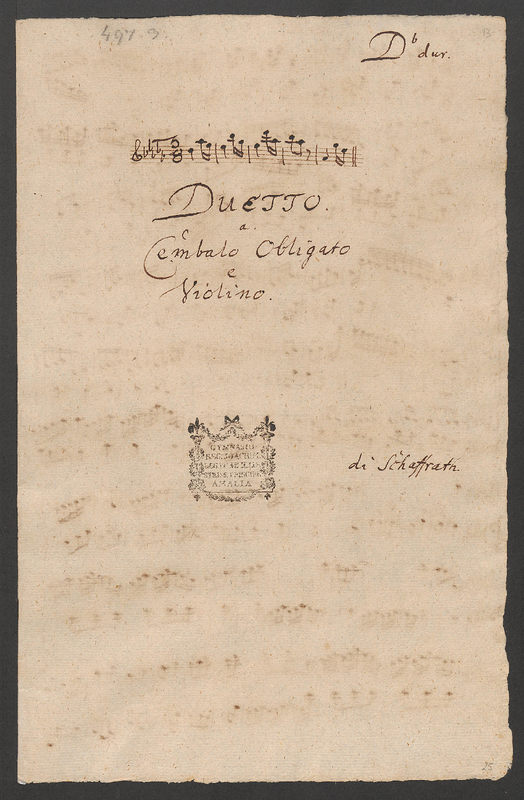 497.3.
13
Db dur.
DUETTO.
a.
Cembalo Obligato
e
Violino.
GYMNASIO
AMALIA
di Schaffrath.
25